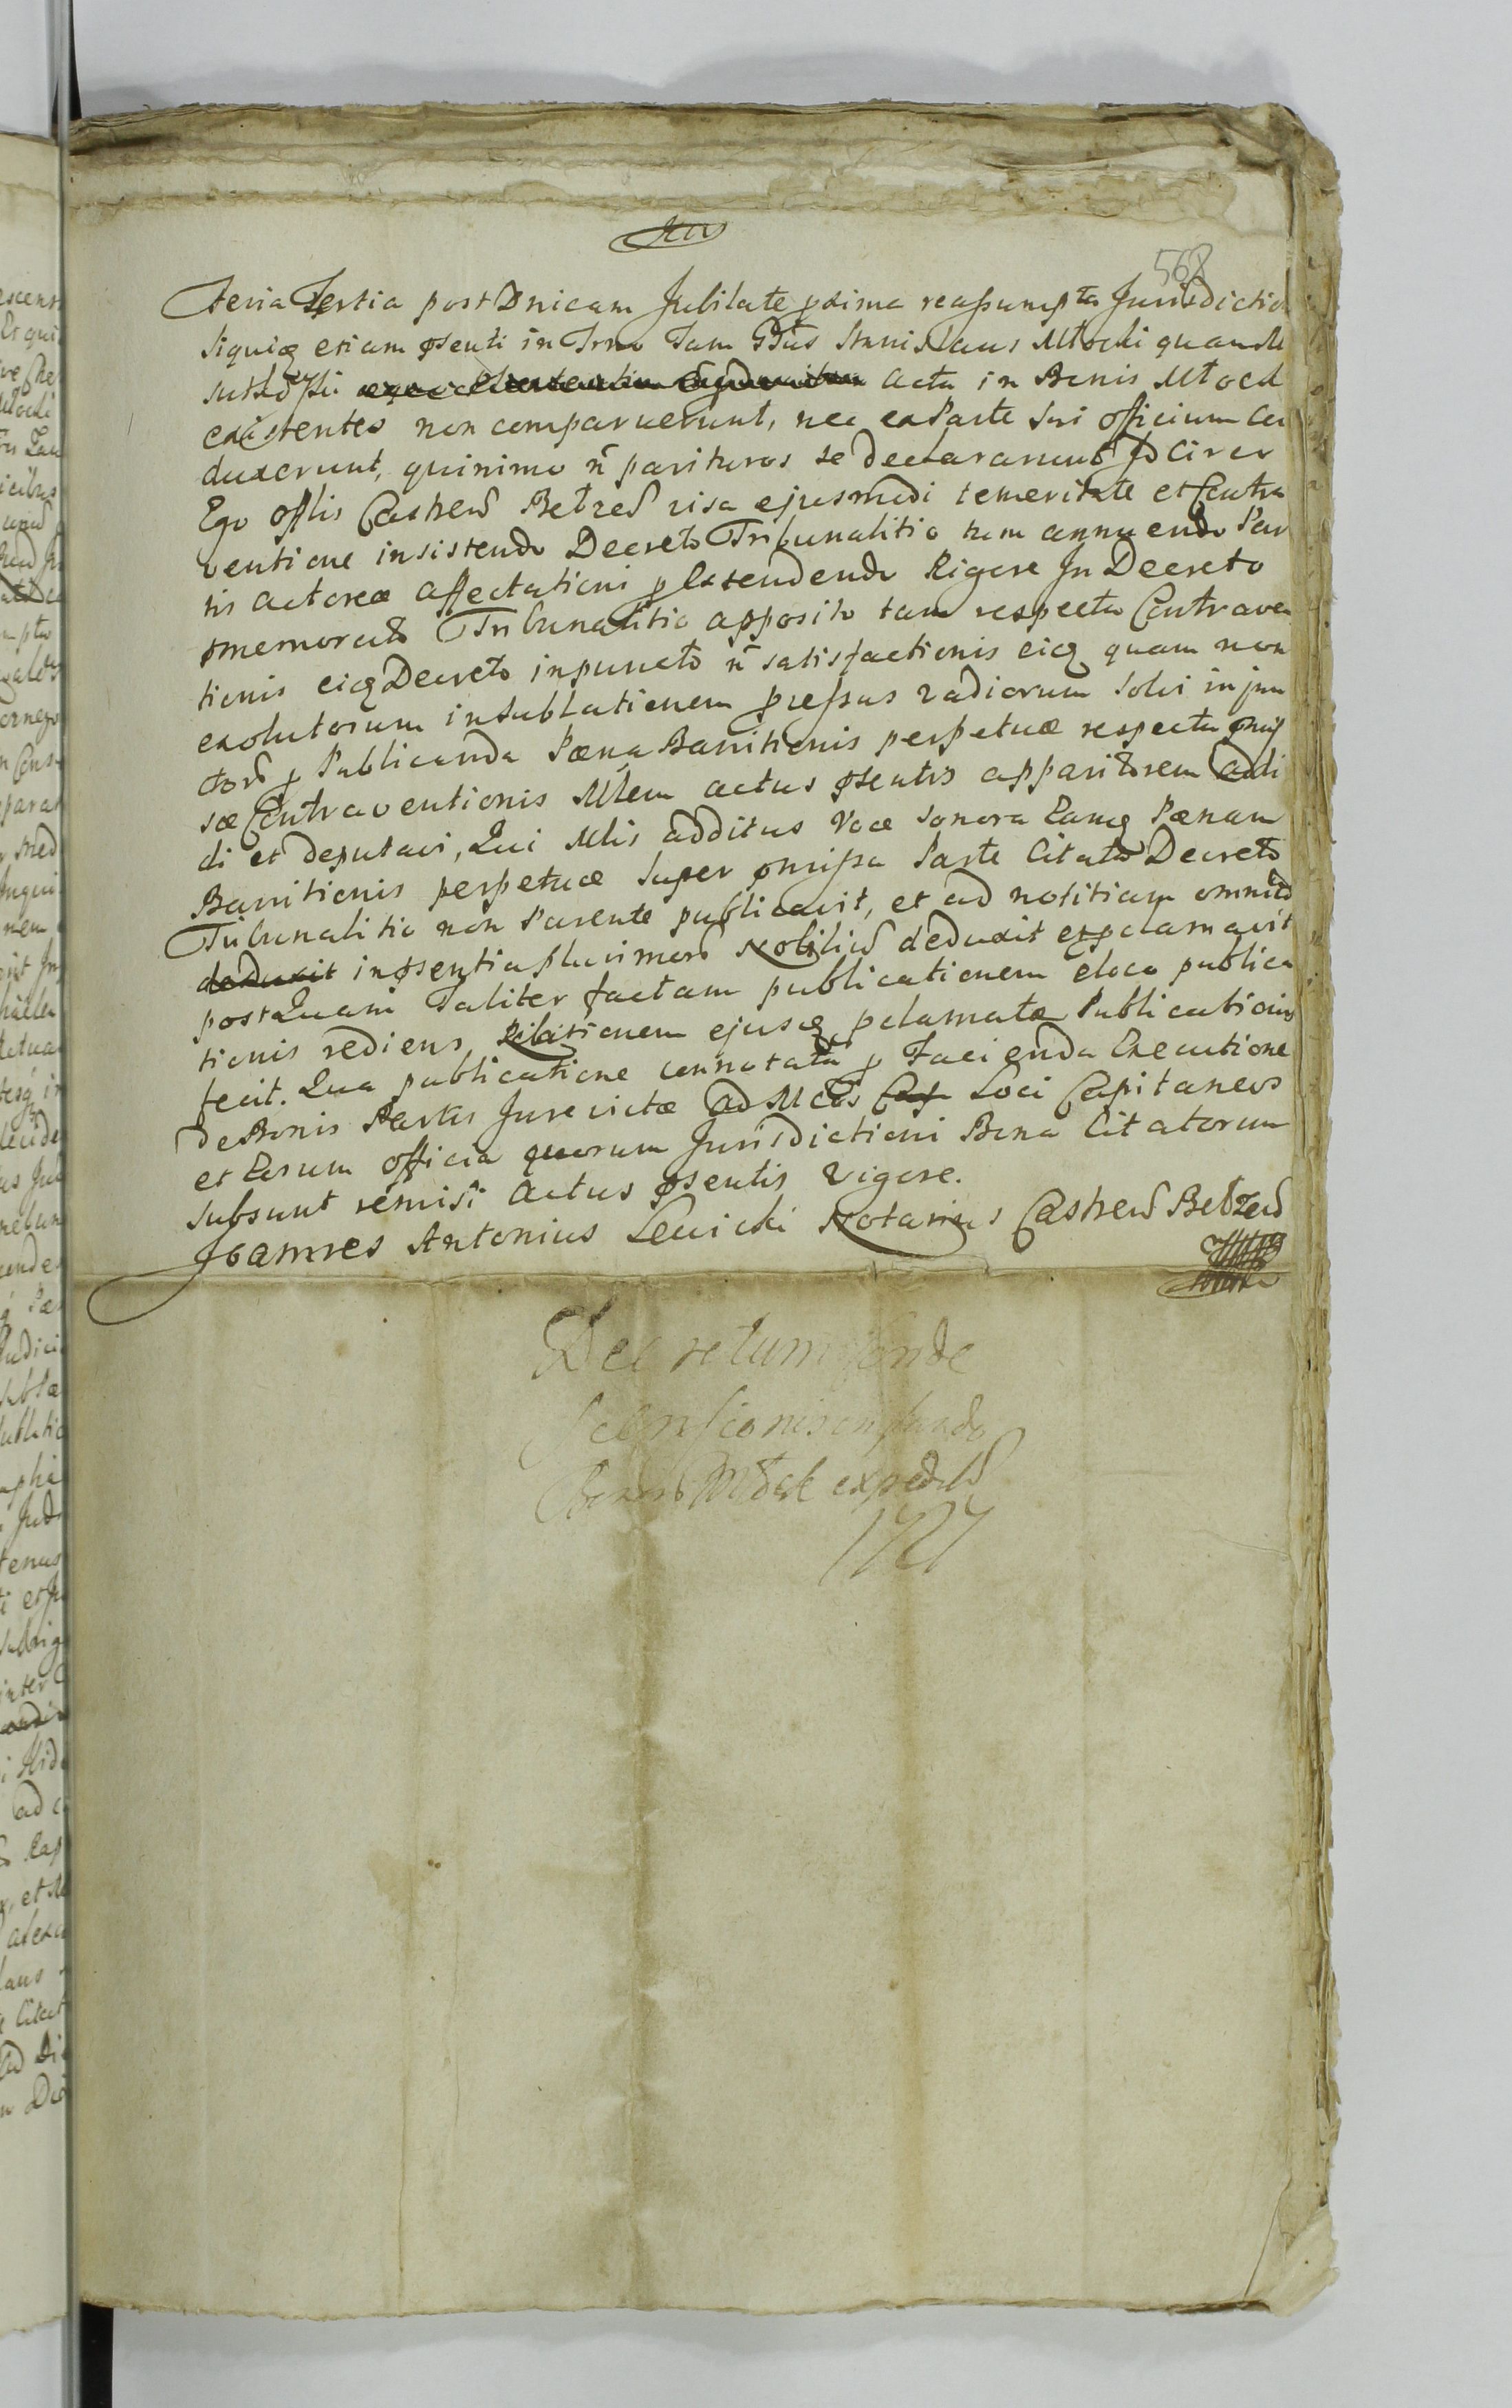 568
Feria Tertia post Dnicam Jubilate pxima reassumpta Jurisdictio
siquidē etiam psenti in Trno Tam Gdus Stanislaus Młocki quam
Subd acta in Bonis Młock
existentes non comparuerunt, nec ex Parte sui officium
duxerunt, quinimo n̄ parituros se declararunt Id Circo
Ego offlis Castren Belzen visa ejusmodi temeritate et Contra
ventione insistendo Decreto Tribunalitio tum annuendo Par
tis actoreæ affectationi p Extendendo Rigore In Decreto
pmemorato Tribunalitio apposito tam respectu Contraven
tionis eidē Decreto inpuncto n̄ satisfactionis eidē quam non
exolutorum insublationem pressus vadiorum solvi injun
ctors p Publicanda Pæna Banitionis perpetuæ respectu pmis
sæ Contraventionis Mlem actus psentis apparitorem addi
di et deputavi, Qui Mlis additus Voce sonora Eamq Pænam
Banitionis perpetuæ super pmissa Parte Citata Decreto
Tribunalitio non Parente publicavit, et ad notitiam omniu
deduxit inpsentia plurimorū Nobiliū deduxit exclamavit
post Quam Taliter factam publicationem eloco publica
tionis rediens, Relationem ejusdē palamatæ Publicationis
fecit. Qua publicatione connotata p Facienda Executione
de Bonis Partis Jure victæ ad Mcos Cap Loci Capitaneos
et Eorum officia quorum Jurisdictioni Bona Citatorum
subsunt remisi actus psentis vigore.
Joannes Antonius Lewicki Notarius Castren Belzen
Decretum
Condescensionis in fundo
Bonorū Młock expeditū
1727